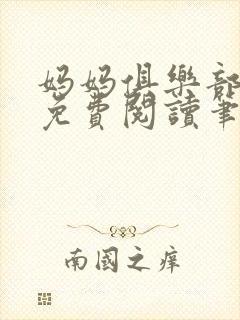 妈妈俱樂部
免費閱讀筆
南國之痒